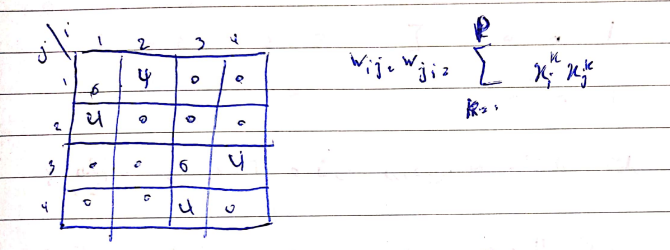 j \ i 1 2 3 4
1 0 4 0 0
2 4 0 0 0
3 0 0 0 4
4 0 0 4 0
w_ij = w_ji = Σ_{k=1}^{P} x_i^k x_j^k